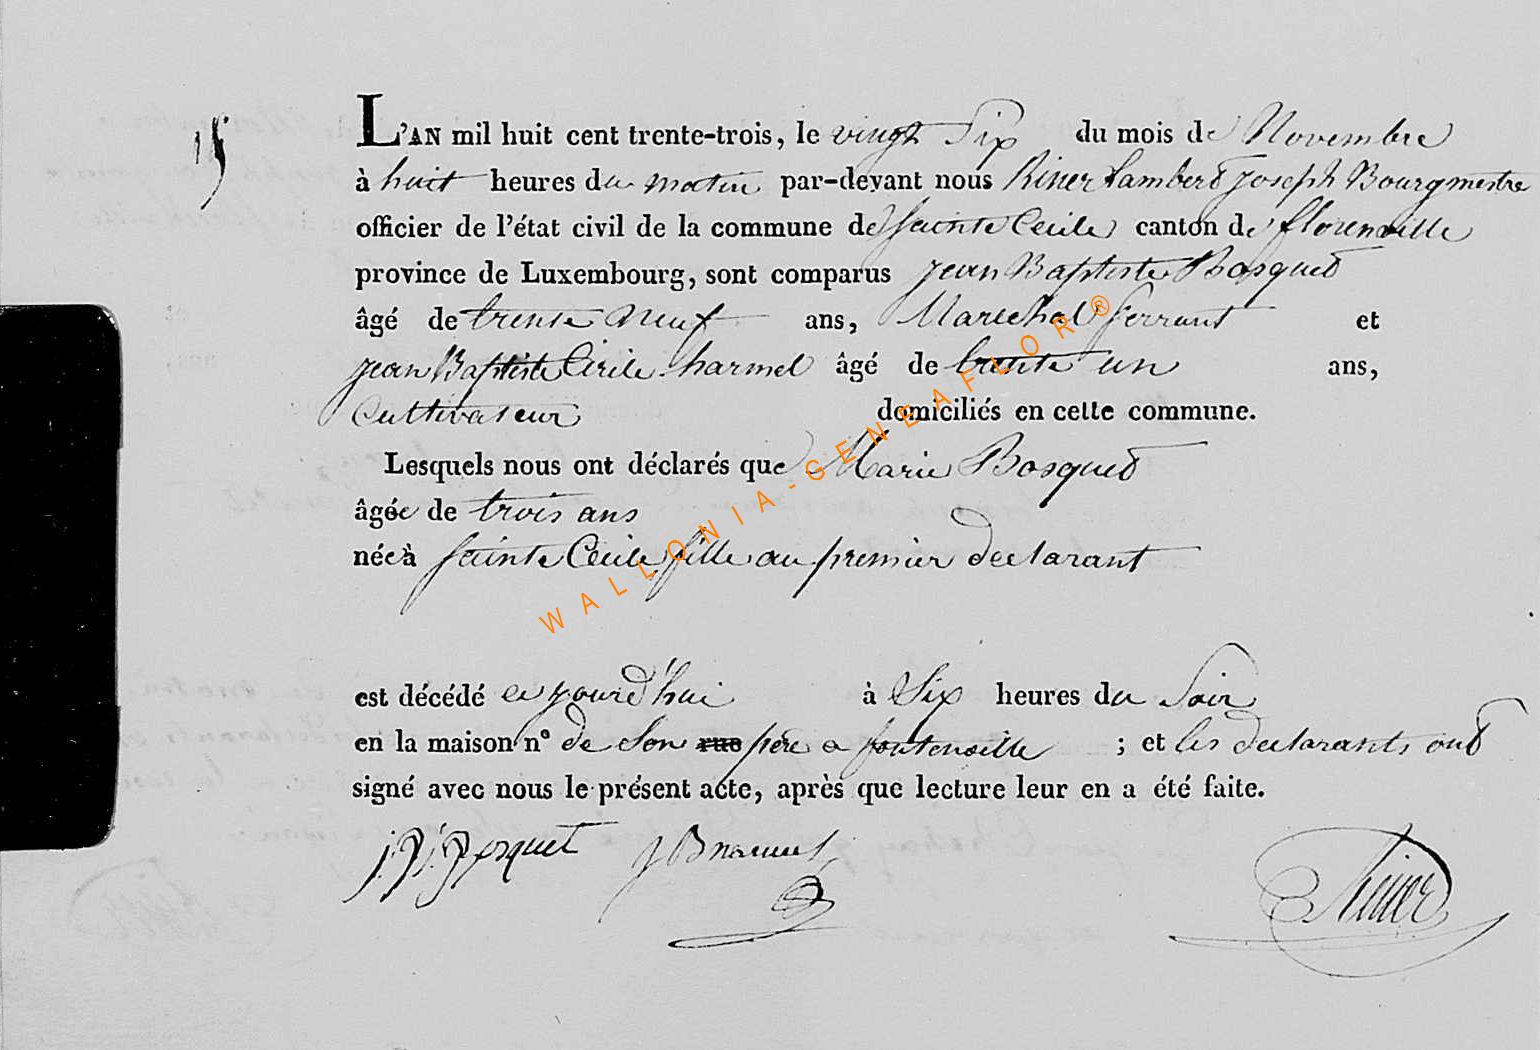 15
L'AN mil huit cent trente-trois, le vingt Six du mois de Novembre
à huit heures du matin par-devant nous Riner Lambert Joseph Bourgmestre
officier de l'état civil de la commune de Sainte Cecile canton de florenville
province de Luxembourg, sont comparus Jean Baptiste Bosquet
âgé de trente neuf ans, Marechal ferrant et
Jean Baptiste Cirile harmel âgé de trente un ans,
Cultivateur domiciliés en cette commune.
Lesquels nous ont déclarés que Marie Bosquet
âgée de trois ans
née à Sainte Cecile fille au premier declarant
est décédé ce jourd'hui à Six heures du Soir
en la maison n° de Son rue père a fontenoille ; et les declarants ont
signé avec nous le présent acte, après que lecture leur en a été faite.
J. B. J. Bosquet Riner
WALLONIA-GENEAFLOR®